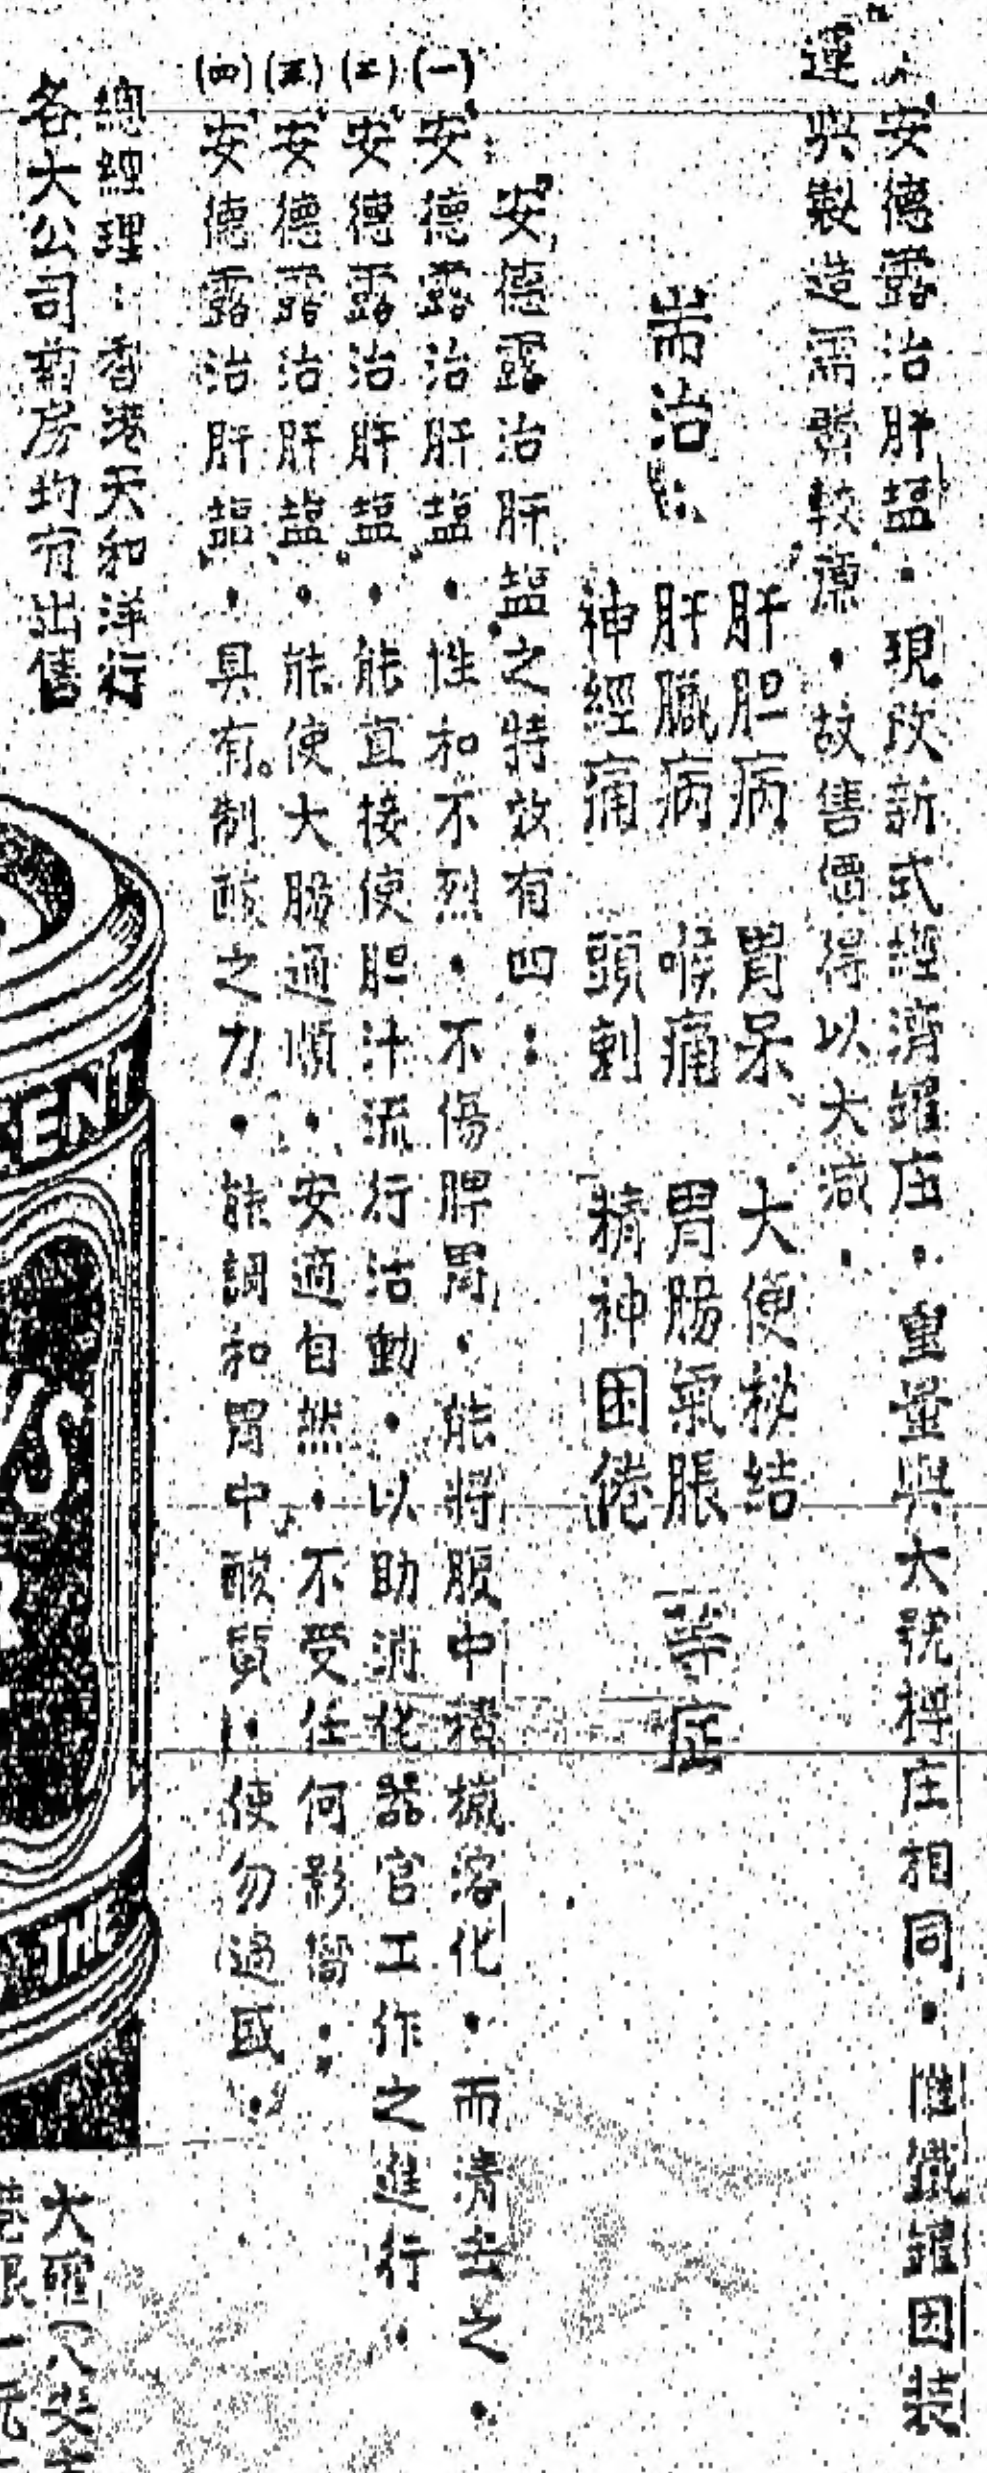 安德露治肝蘁．現改新式經濟罐庄．重量與大號樽庄相同．惟鐵罐因裝
運與製造需費較廉．故售價得以大減．
耑治：
肝胆病　胃呆　大便秘結
肝臟病　喉痛　胃腸氣脹　等症
神經痛　頭刺　精神困倦
安德露治肝蘁之特效有四：
(一)安德露治肝蘁．性和不烈．不傷脾胃．能將腹中積滅溶化．而清去之．
(二)安德露治肝蘁．能直接使胆汁流行活動．以助消化器官工作之進行．
(三)安德露治肝蘁．能使大腸通順．安適自然．不受任何影響．
(四)安德露治肝蘁．具有制酸之力．能調和胃中酸質．使勿過或．
總經理：香港天和洋行
各大公司葯房均有出售
ENT
S
THE
大罐(八安
港銀一元